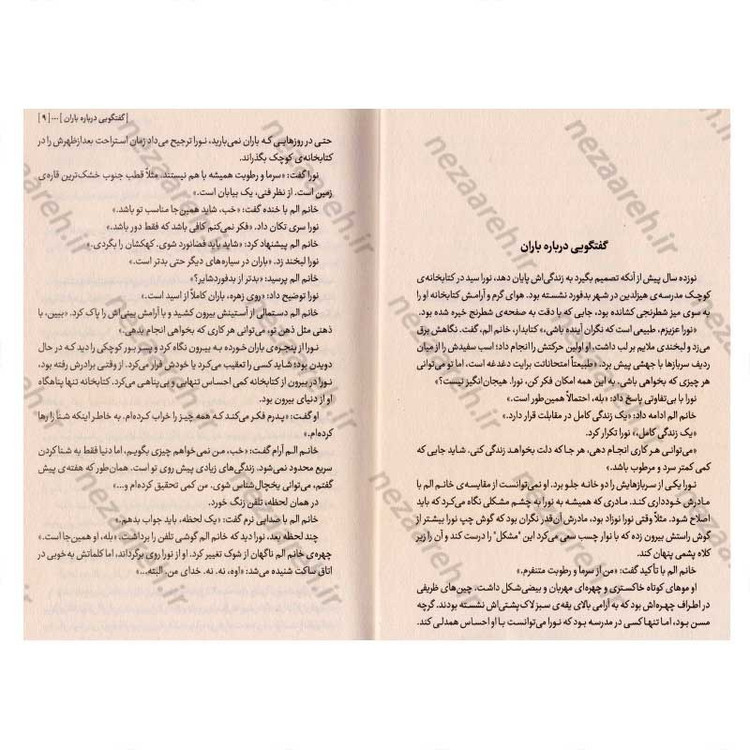 گفتگویی درباره باران
نوزده سال پیش از آنکه تصمیم بگیرد به زندگی‌اش پایان دهد، نورا سید در کتابخانه‌ی
کوچک مدرسه‌ی هیزلدین در شهر بدفورد نشسته بود. هوای گرم و آرامش کتابخانه او را
به سوی میز شطرنجی کشانده بود، جایی که با دقت به صفحه‌ی شطرنج خیره شده بود.
«نورا عزیزم، طبیعی است که نگران آینده باشی،» کتابدار، خانم الم، گفت. نگاهش برق
می‌زد و لبخندی ملایم بر لب داشت. او اولین حرکتش را انجام داد؛ اسب سفیدش را از میان
ردیف سربازها با جهشی پیش برد. «طبیعتاً امتحاناتت برایت دغدغه است، اما تو می‌توانی
هر چیزی که بخواهی باشی. به این همه امکان فکر کن، نورا. هیجان‌انگیز نیست؟»
نورا با بی‌تفاوتی پاسخ داد: «بله، احتمالاً همین‌طور است.»
خانم الم ادامه داد: «یک زندگی کامل در مقابلت قرار دارد.»
«یک زندگی کامل،» نورا تکرار کرد.
«می‌توانی هر کاری انجام دهی، هر جا که دلت بخواهد زندگی کنی. شاید جایی که
کمی کمتر سرد و مرطوب باشد.»
نورا یکی از سربازهایش را دو خانه جلو برد. او نمی‌توانست از مقایسه‌ی خانم الم با
مادرش خودداری کند. مادری که همیشه به نورا به چشم مشکلی نگاه می‌کرد که باید
اصلاح شود. مثلاً وقتی نورا نوزاد بود، مادرش آن‌قدر نگران بود که گوش چپ نورا بیشتر از
گوش راستش بیرون زده که با نوار چسب سعی می‌کرد این "مشکل" را درست کند و آن را زیر
کلاه پشمی پنهان کند.
خانم الم با تأکید گفت: «من از سرما و رطوبت متنفرم.»
او موهای کوتاه خاکستری و چهره‌ای مهربان و بیضی‌شکل داشت، چین‌های ظریفی
در اطراف چهره‌اش بود که به آرامی بالای یقه‌ی سبز لاک‌پشتی‌اش نشسته بودند. گرچه
مسن بود، اما تنها کسی در مدرسه بود که نورا می‌توانست با او احساس همدلی کند.
[ گفتگویی درباره باران ] ... | ۹ |
حتی در روزهایی که باران نمی‌بارید، نورا ترجیح می‌داد زمان استراحت بعدازظهرش را در
کتابخانه‌ی کوچک بگذراند.
نورا گفت: «سرما و رطوبت همیشه با هم نیستند. مثلاً قطب جنوب خشک‌ترین قاره‌ی
زمین است. از نظر فنی، یک بیابان است.»
خانم الم با خنده گفت: «خب، شاید همین‌جا مناسب تو باشد.»
نورا سری تکان داد. «فکر نمی‌کنم کافی باشد که فقط دور باشد.»
خانم الم پیشنهاد کرد: «شاید باید فضانورد شوی. کهکشان را بگردی.»
نورا لبخند زد. «باران در سیاره‌های دیگر حتی بدتر است.»
خانم الم پرسید: «بدتر از بدفوردشایر؟»
نورا توضیح داد: «روی زهره، باران کاملاً از اسید است.»
خانم الم دستمالی از آستینش بیرون کشید و با آرامش بینی‌اش را پاک کرد. «ببین، با
ذهنی مثل ذهن تو، می‌توانی هر کاری که بخواهی انجام بدهی.»
نورا از پنجره‌ی باران خورده به بیرون نگاه کرد و پسر بور کوچکی را دید که در حال
دویدن بود؛ شاید کسی را تعقیب می‌کرد یا خودش فرار می‌کرد. از وقتی برادرش رفته بود،
نورا در بیرون از کتابخانه کمی احساس تنهایی و بی‌پناهی می‌کرد. کتابخانه تنها پناهگاه
او از دنیای بیرون بود.
او گفت: «پدرم فکر می‌کند که همه چیز را خراب کرده‌ام. به خاطر اینکه شنا را رها
کرده‌ام.»
خانم الم آرام گفت: «خب، من نمی‌خواهم چیزی بگویم، اما دنیا فقط به شنا کردن
سریع محدود نمی‌شود. زندگی‌های زیادی پیش روی تو است. همان‌طور که هفته‌ی پیش
گفتم، می‌توانی یخچال‌شناس شوی. من کمی تحقیق کرده‌ام و...»
در همان لحظه، تلفن زنگ خورد.
خانم الم با صدایی نرم گفت: «یک لحظه، باید جواب بدهم.»
چند لحظه بعد، نورا دید که خانم الم گوشی تلفن را برداشت. «بله، او همین‌جا است.»
چهره‌ی خانم الم ناگهان از شوک تغییر کرد. او از نورا روی برگرداند، اما کلماتش به خوبی در
اتاق ساکت شنیده می‌شد: «اوه، نه. نه. خدای من. البته...»
nezaareh.ir